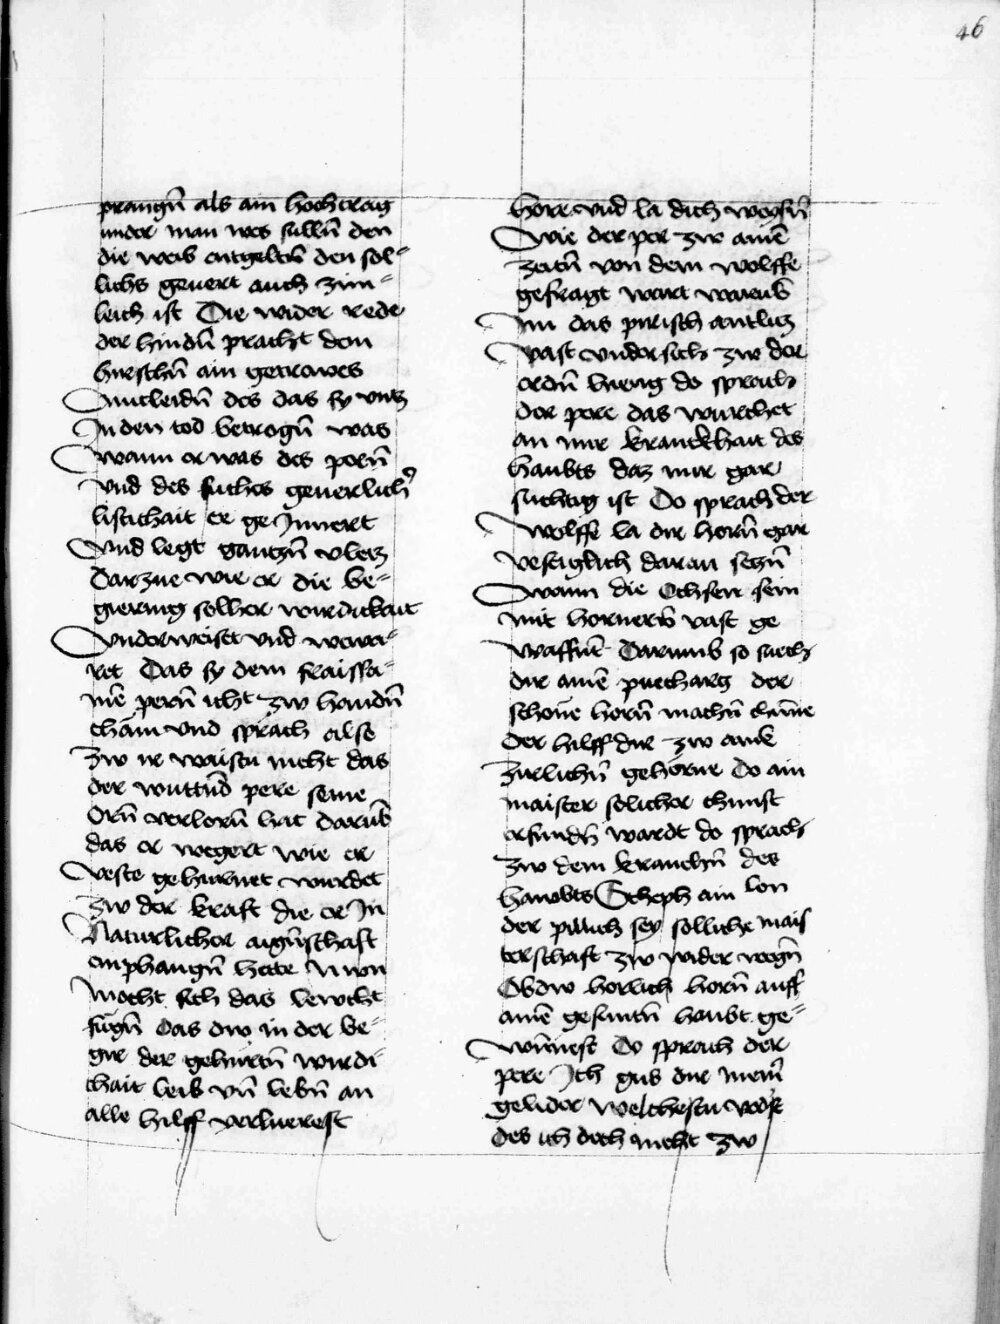 46
prangn̄ als ain hochtrag
under man wes sulln̄ den
die weib entgeltn̄ den sol-
lichs geuert auch zim-
leich ist Die wider rede
der hindn̄ pracht dem
hirschn̄ ain getrawes
mitleidn̄ des das sy vntz
In den tod betrogn̄ was
wann er was des pern̄
vnd des fuchs geuerlich'
listichait er ge Innert
vnd legt gantzn̄ vleis
darzue wie er die be-
gierung solher wirdikait
vnderweiset vnd wewa-
ret Das sy dem fraissa-
mē pern̄ icht zw handn̄
cham vnd sprach also
Zw ir waistu nicht das
der wuttund pere seine
orn̄ verlorn̄ hat darūb
das er wegert wie er
veste gehurnet wurdet
zw der kraft die er In
Naturlicher aign̄schaft
enphangn̄ hette Nwn
mocht sich das leucht
fugn̄ das dw in der be-
gir der gehurtn̄ wirdi-
chait leib vn̄ lebn̄ an
alle hilff verluerest
hore vnd la dich weysn̄
wie der per zw ainē
zeitn̄ von dem wolffe
gefragt wart warūb
Im das pirisch antlitz
vast vndersich zw der
erdn̄ hieng do sprach
der pere das wurchet
an mir kranckhait des
haubts daz mir gar
suchtig ist Do sprach der
wolffe la dir horn̄ gar
vestiglich daran seczn̄
wann die Ochsen sein
mit hornern vast ge
waffnet Darumb so suech
dir ainē puecharg der
schone horn̄ machn̄ chūne
der hilff dir zw ainē
zirlichn̄ gehorne Do ain
maister solicher chunst
erfundn̄ wardt do sprach
zw dem kranchn̄ des
hawbts Scheph ain lon
der pillich sey solliche mais
terschaft zw wider wegn̄
Ob dw herlich horn̄ auff
ainē gesuntn̄ haubt ge-
winnest Do sprach der
pere Ich gib dir meinē
gelider welchestu wodst
des ich doch nicht zw